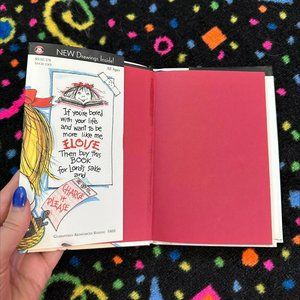 NEW Drawings Inside!
All Ages
If you're bored
with your life
and want to be
more like me
ELOISE
Then buy this
BOOK
for Lord's sake
and
CHARGE IT
PLEASE
Guaranteed Reinforced Binding